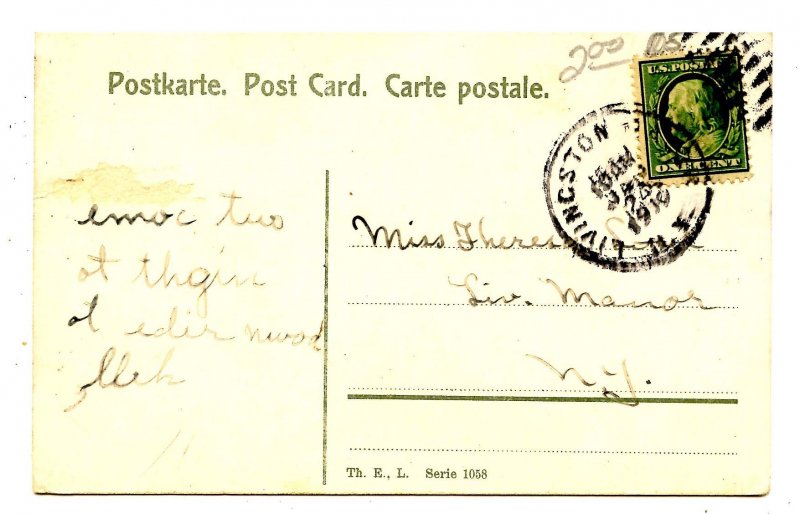 2.00 DS
Postkarte. Post Card. Carte postale.
U.S. POSTAGE
ONE CENT
LIVINGSTON
1910
N.Y.
emoc tuo
ot thgin
ot edir nwod
Miss Theresa
Liv. Manor
N.Y.
Th. E., L. Serie 1058